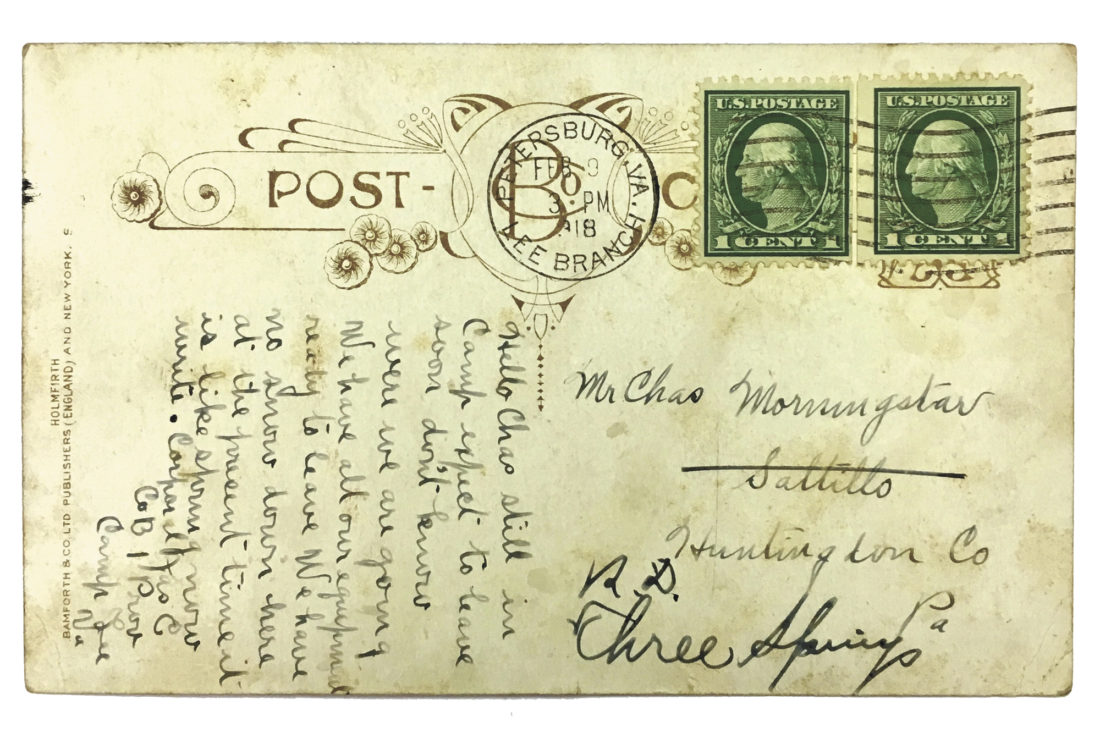 POST-
B Co.
C
PETERSBURG, VA.
FEB 9
3 PM
1918
LEE BRANCH
U.S. POSTAGE
1 CENT 1
U.S. POSTAGE
1 CENT 1
HOLMFIRTH
BAMFORTH & CO. LTD PUBLISHERS (ENGLAND) AND NEW YORK.
Hello Chas still in
Camp expect to leave
soon don't know
were we are going
We have all our equipment
ready to leave We have
no snow down here
at the present time it
is like spring now
write. Corporal Jas C
Co B 1 Prov
Camp Lee
Va
Mr Chas Morningstar
Saltillo
Huntingdon Co
Pa
R.D.
Three Springs